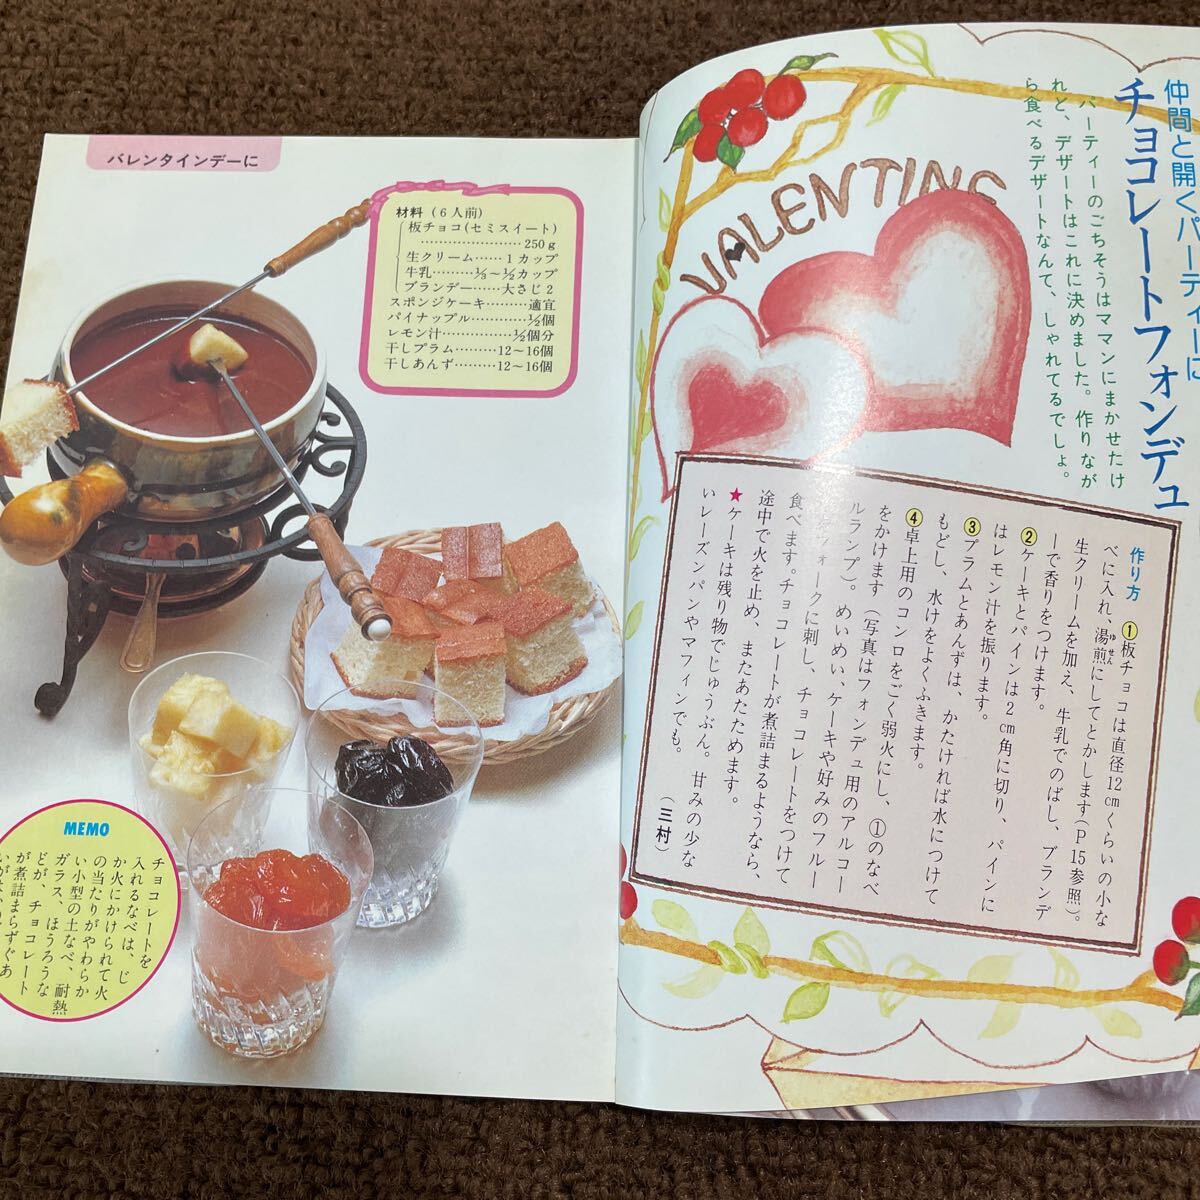 仲間と開くパーティーに
チョコレートフォンデュ
パーティーのごちそうはママンにまかせたけ
れど、デザートはこれに決めました。作りなが
ら食べるデザートなんて、しゃれてるでしょ。
VALENTINE
作り方 ①板チョコは直径12cmくらいの小な
べに入れ、湯煎にしてとかします(P15参照)。
ゆせん
生クリームを加え、牛乳でのばし、ブランデ
ーで香りをつけます。
②ケーキとパインは2cm角に切り、パインに
はレモン汁を振ります。
③プラムとあんずは、かたければ水につけて
もどし、水けをよくふきます。
④卓上用のコンロをごく弱火にし、①のなべ
をかけます(写真はフォンデュ用のアルコー
ルランプ)。めいめい、ケーキや好みのフルー
ツをフォークに刺し、チョコレートをつけて
食べます。チョコレートが煮詰まるようなら、
途中で火を止め、またあたためます。
★ケーキは残り物でじゅうぶん。甘みの少な
いレーズンパンやマフィンでも。
(三村)
バレンタインデーに
材料(6人前)
板チョコ(セミスイート)
……………………250g
生クリーム……1カップ
牛乳………⅓~½カップ
ブランデー……大さじ2
スポンジケーキ………適宜
パイナップル…………½個
レモン汁……………½個分
干しプラム………12~16個
干しあんず………12~16個
MEMO
チョコレートを
入れるなべは、じ
か火にかけられて火
の当たりがやわらか
い小型の土なべ、耐熱
ガラス、ほうろうな
どが、チョコレート
が煮詰まらずぐあ